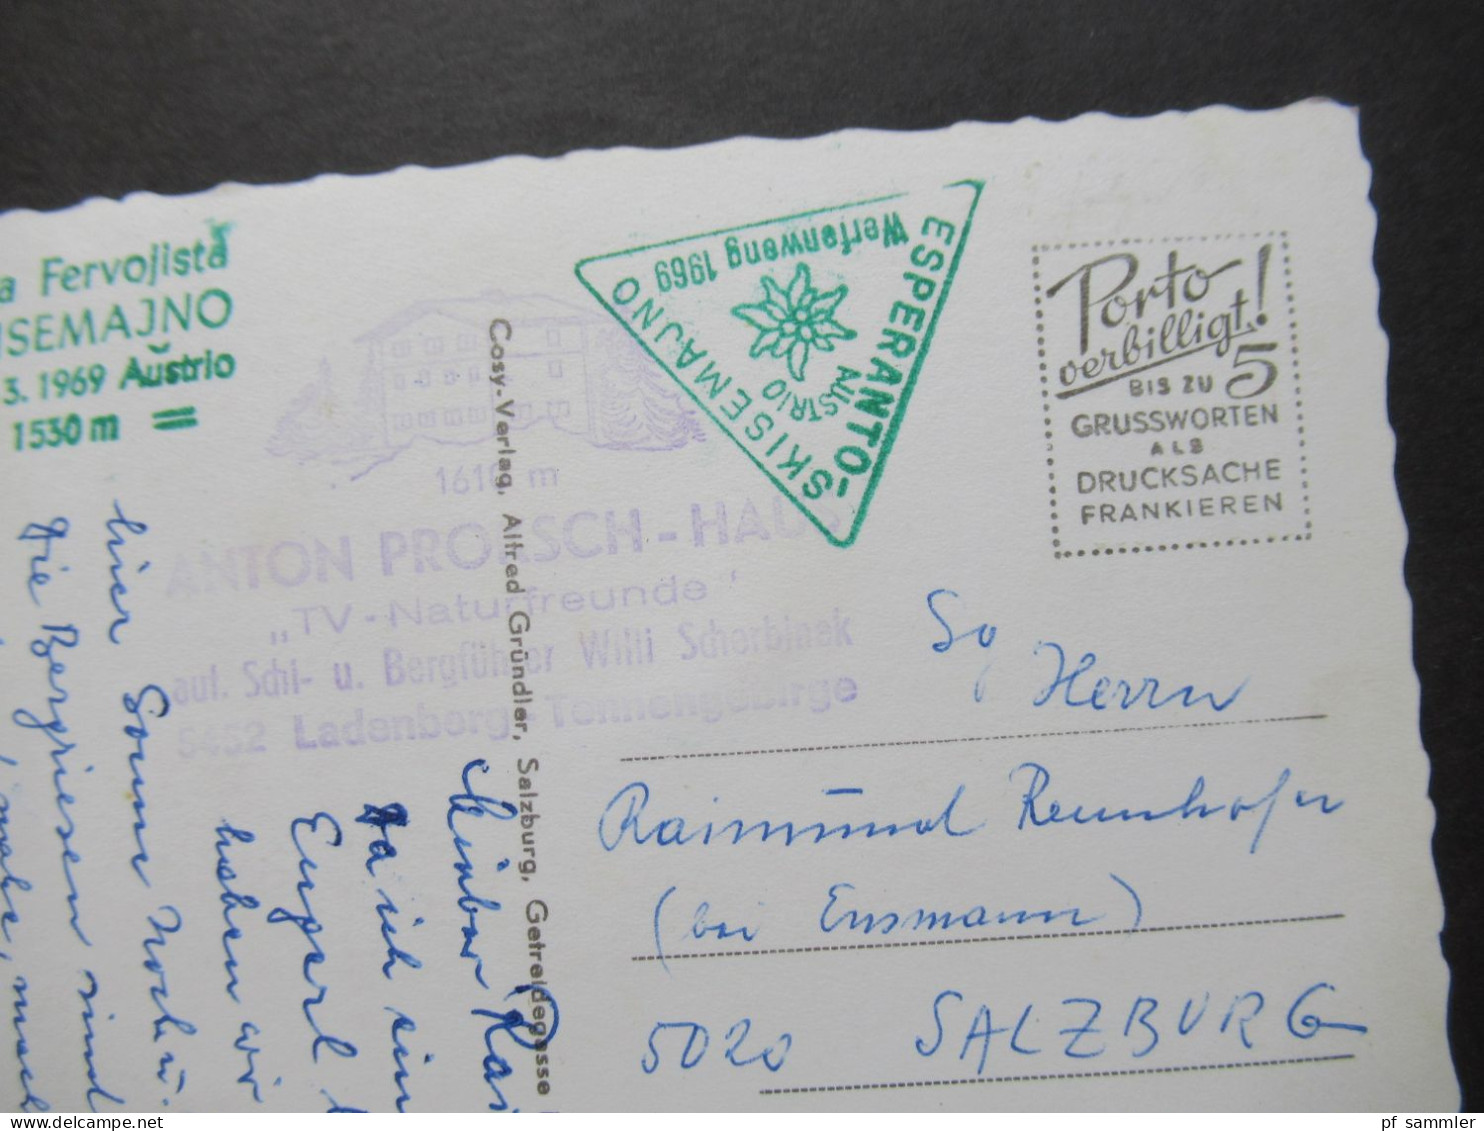 a Fervojista
ISEMAJNO
3. 1969 Aŭstrio
1530 m
1610 m
ANTON PROKSCH-HAUS
„TV-Naturfreunde"
aut. Schi- u. Bergführer Willi Scherbinek
5452 Ladenberg-Tennengebirge
Cosy-Verlag, Alfred Gründler, Salzburg, Getreidegasse
ESPERANTO-
SKISEMAJNO
Werfenweng 1969
AŬSTRIO
Porto
verbilligt!
BIS ZU 5
GRUSSWORTEN
ALS
DRUCKSACHE
FRANKIEREN
Herrn
Raimund Rennhofer
(bei Ensmann)
5020 SALZBURG
da ich ein
Engerl
haben wir
hier
Die Bergriesen sind
pf sammler